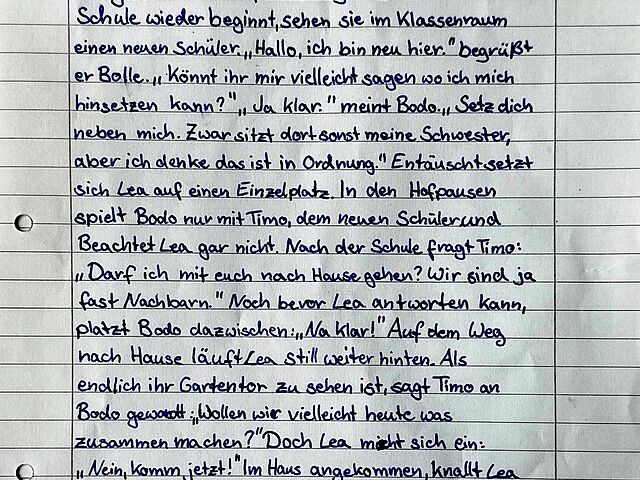 Schule wieder beginnt, sehen sie im Klassenraum
einen neuen Schüler. „Hallo, ich bin neu hier." begrüßt
er Bolle. „Könnt ihr mir vielleicht sagen wo ich mich
hinsetzen kann?" „Ja klar." meint Bodo. „Setz dich
neben mich. Zwar sitzt dort sonst meine Schwester,
aber ich denke das ist in Ordnung." Entäuscht setzt
sich Lea auf einen Einzelplatz. In den Hofpausen
spielt Bodo nur mit Timo, dem neuen Schüler und
Beachtet Lea gar nicht. Nach der Schule fragt Timo:
„Darf ich mit euch nach Hause gehen? Wir sind ja
fast Nachbarn." Noch bevor Lea antworten kann,
platzt Bodo dazwischen: „Na klar!" Auf dem Weg
nach Hause läuft Lea still weiter hinten. Als
endlich ihr Gartentor zu sehen ist, sagt Timo an
Bodo gewandt: „Wollen wir vielleicht heute was
zusammen machen?" Doch Lea mischt sich ein:
„Nein, komm jetzt!" Im Haus angekommen, knallt Lea